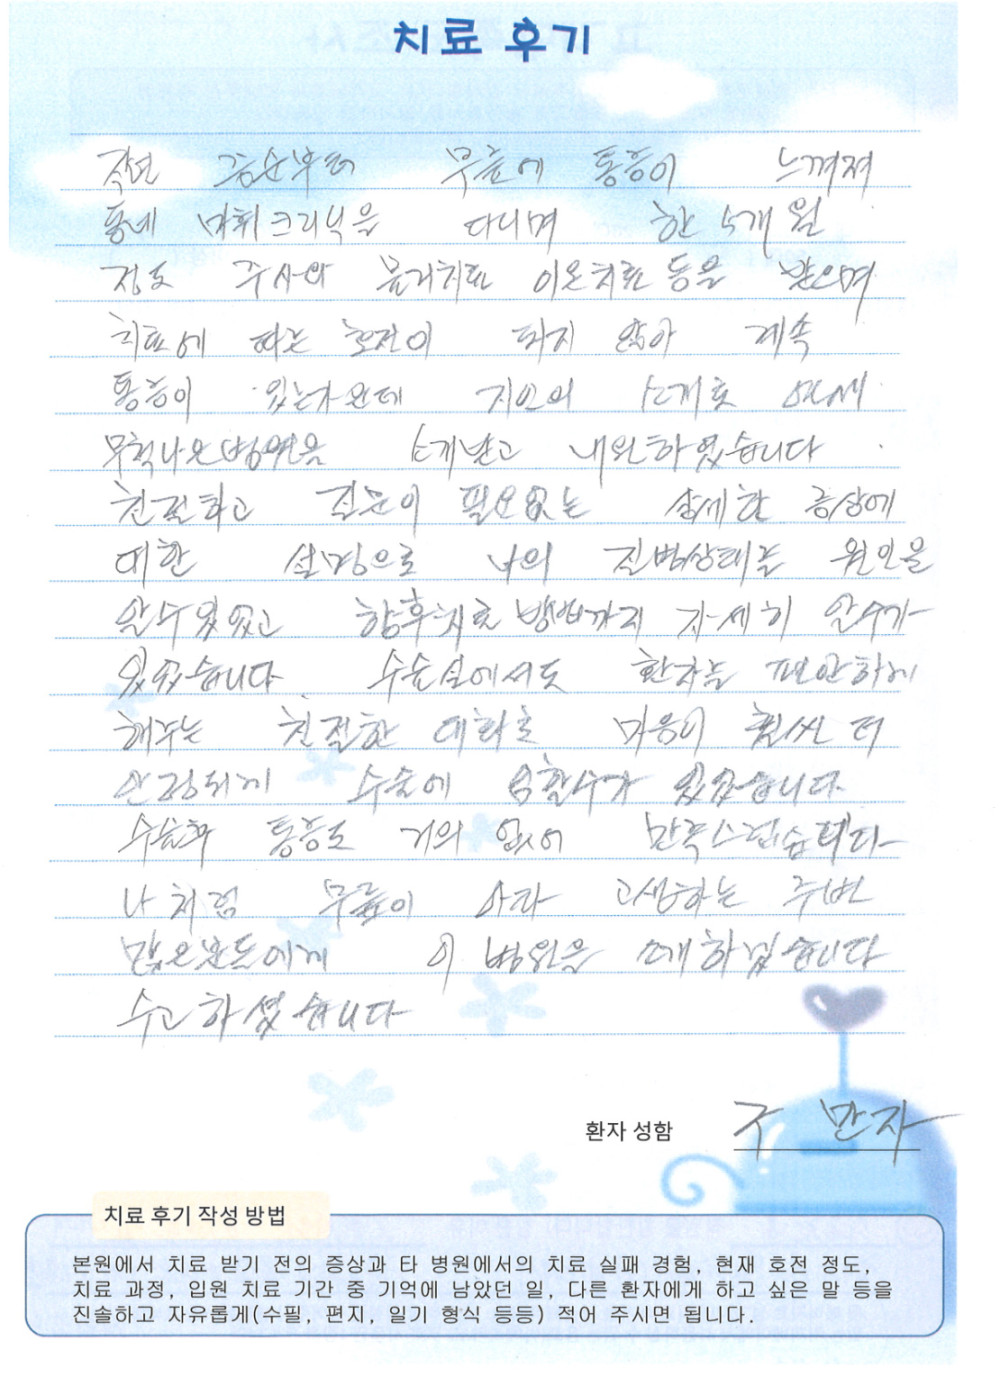 치료 후기
작년 금순부터 무릎에 통증이 느껴져
동네 마취크리닉을 다니며 한 5개월
정도 주사와 물리치료 이온치료 등을 받으며
치료에 따른 호전이 되지 않아 계속
통증이 있는가운데 지인의 소개로 연세
무척나은병원을 소개받고 내원하였습니다
친절하고 질문이 필요없는 상세한 증상에
대한 설명으로 나의 질병상태를 원인을
알수있었고 향후치료 방법까지 자세히 알수가
있었습니다 수술실에서도 환자를 편안하게
해주는 친절한 대화로 마음이 훨씬 더
안정되게 수술에 임할수가 있었습니다.
수술후 통증도 거의 없어 만족스럽습니다
나처럼 무릎이 아파 고생하는 주변
많은분들에게 이 병원을 소개하겠습니다
수고하셨습니다
환자 성함 구만자
치료 후기 작성 방법
본원에서 치료 받기 전의 증상과 타 병원에서의 치료 실패 경험, 현재 호전 정도,
치료 과정, 입원 치료 기간 중 기억에 남았던 일, 다른 환자에게 하고 싶은 말 등을
진솔하고 자유롭게(수필, 편지, 일기 형식 등등) 적어 주시면 됩니다.